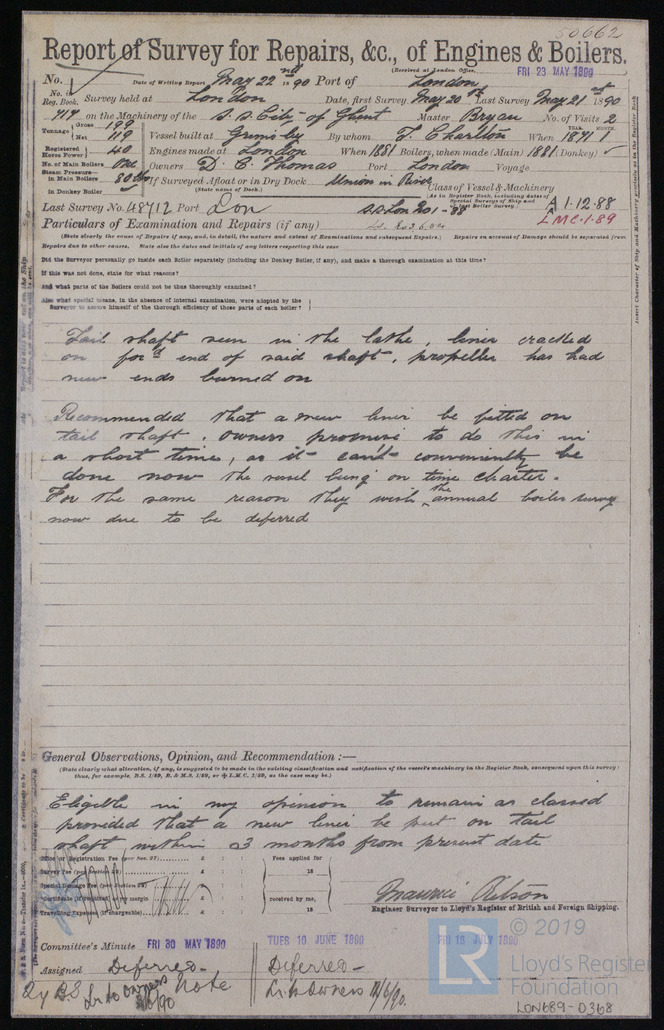 50662
Report of Survey for Repairs, &c., of Engines & Boilers.
(Received at London Office, FRI 23 MAY 1890
No. Date of Writing Report May 22nd 1890 Port of London
No. in Reg. Book. Survey held at London Date, first Survey May 20th Last Survey May 21st 1890
717 on the Machinery of the S.S. City of Ghent Master Bryan No. of Visits 2
Tonnage Gross 199 Net 119 Vessel built at Grimsby By whom T. Charlton When YEAR. 1871 MONTH. 1
Registered Horse Power 40 Engines made at London When 1881 Boilers, when made (Main) 1881 (Donkey)
No. of Main Boilers One Owners D. C. Thomas Port London Voyage
Steam Pressure in Main Boilers 80 lbs If Surveyed Afloat or in Dry Dock Union in River
(State name of Dock.)
in Donkey Boiler
Class of Vessel & Machinery
(As in Register Book, including dates of Special Surveys of Ship and of last Boiler Survey.)
Last Survey No. 48712 Port Lon S.S. Lon No 1-88 A 1.12.88
LMC.1.89
Particulars of Examination and Repairs (if any)
(State clearly the cause of Repairs if any, and, in detail, the nature and extent of Examinations and subsequent Repairs.) Repairs on account of Damage should be separated from
Repairs due to other causes. State also the dates and initials of any letters respecting this case
Did the Surveyor personally go inside each Boiler separately (including the Donkey Boiler, if any), and make a thorough examination at this time?
If this was not done, state for what reasons?
And what parts of the Boilers could not be thus thoroughly examined?
Also what special means, in the absence of internal examination, were adopted by the
Surveyor to assure himself of the thorough efficiency of those parts of each boiler?
Tail shaft seen in the lathe, liner cracked
on for'd end of said shaft, propeller has had
new ends burned on
Recommended that a new liner be fitted on
tail shaft. Owners promise to do this in
a short time, as it can't conveniently be
done now the vessel being on time charter.
For the same reason they wish the annual boiler survey
now due to be deferred
General Observations, Opinion, and Recommendation :—
(State clearly what alteration, if any, is suggested to be made in the existing classification and notification of the vessel's machinery in the Register Book, consequent upon this survey:
thus, for example, B.S. 1/89, B. & M.S. 1/89, or L.M.C. 1/89, as the case may be.)
Eligible in my opinion to remain as classed
provided that a new liner be put on tail
shaft within 3 months from present date
Office or Registration Fee (per Sec. 27) £ : : Fees applied for
Survey Fee (per Section 28) £ : : 18
Special Damage Fee (per Section 28) £ : :
Certificate (if required) as per margin £ : : received by me,
Travelling Expenses (if chargeable) £ : : 18
Maurice Wilson
Engineer Surveyor to Lloyd's Register of British and Foreign Shipping.
Committee's Minute FRI 30 MAY 1890 TUES 10 JUNE 1890 FRI 18 JULY 1890
Assigned Deferred - Deferred -
Lr to owners Note Lr to Owners 11/6/90.
© 2019
LR Lloyd's Register Foundation
LON689-0368